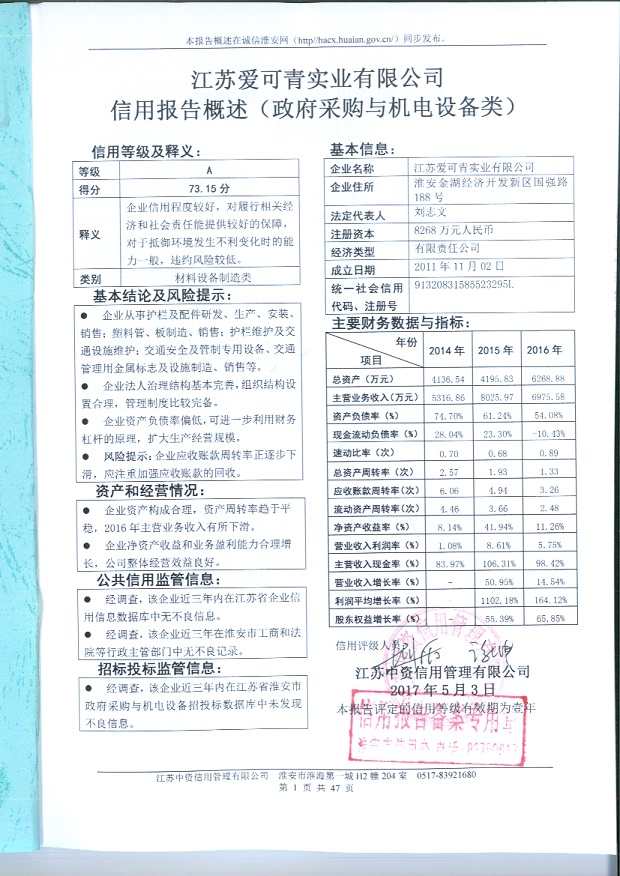 本报告概述在诚信淮安网（http//hacx.huaian.gov.cn/）同步发布。
江苏爱可青实业有限公司
信用报告概述（政府采购与机电设备类）
信用等级及释义：
等级 A
得分 73.15 分
释义 企业信用程度较好，对履行相关经
济和社会责任能提供较好的保障，
对于抵御环境发生不利变化时的能
力一般，违约风险较低。
类别 材料设备制造类
基本结论及风险提示：
● 企业从事护栏及配件研发、生产、安装、
销售；塑料管、板制造、销售；护栏维护及交
通设施维护；交通安全及管制专用设备、交通
管理用金属标志及设施制造、销售等。
● 企业法人治理结构基本完善，组织结构设
置合理，管理制度比较完备。
● 企业资产负债率偏低，可进一步利用财务
杠杆的原理，扩大生产经营规模。
● 风险提示：企业应收账款周转率正逐步下
滑，应注重加强应收账款的回收。
资产和经营情况：
● 企业资产构成合理，资产周转率趋于平
稳，2016 年主营业务收入有所下滑。
● 企业净资产收益和业务盈利能力合理增
长，公司整体经营效益良好。
公共信用监管信息：
● 经调查，该企业近三年内在江苏省企业信
用信息数据库中无不良信息。
● 经调查，该企业近三年在淮安市工商和法
院等行政主管部门中无不良记录。
招标投标监管信息：
● 经调查，该企业近三年内在江苏省淮安市
政府采购与机电设备招投标数据库中未发现
不良信息。
基本信息：
企业名称 江苏爱可青实业有限公司
企业住所 淮安金湖经济开发新区国强路
188 号
法定代表人 刘志文
注册资本 8268 万元人民币
经济类型 有限责任公司
成立日期 2011 年 11 月 02 日
统一社会信用
代码、注册号 91320831585523295L
主要财务数据与指标：
年份
项目 2014 年 2015 年 2016 年
总资产（万元） 4136.54 4195.83 6268.88
主营业务收入(万元) 5316.86 8025.97 6975.58
资产负债率（%） 74.70% 61.24% 54.08%
现金流动负债率（%） 28.04% 23.30% -10.43%
速动比率（%） 0.70 0.68 0.89
总资产周转率（次） 2.57 1.93 1.33
应收账款周转率（次） 6.06 4.94 3.26
流动资产周转率（次） 4.46 3.66 2.48
净资产收益率（%） 8.14% 41.94% 11.26%
营业收入利润率（%） 1.08% 8.61% 5.75%
主营收入现金率（%） 83.97% 106.31% 98.42%
营业收入增长率（%） - 50.95% 14.54%
利润平均增长率（%） 1102.18% 164.12%
股东权益增长率（%） 55.39% 65.85%
信用评级人员：
江苏中资信用管理有限公司
2017 年 5 月 3 日
本报告评定的信用等级有效期为壹年
信用报告备案专用章
江苏中资信用管理有限公司 淮安市淮海第一城 H2 幢 204 室 0517-83921680
第 1 页 共 47 页